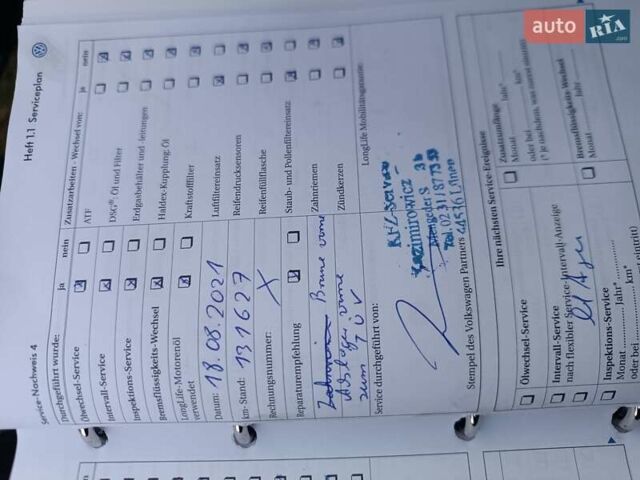 auto RIA.com
Heft 1.1 Serviceplan
Service-Nachweis 4
Durchgeführt wurde: ja nein
Ölwechsel-Service
Intervall-Service
Inspektions-Service
Bremsflüssigkeits-Wechsel
LongLife-Motorenöl
verwendet
Datum: 18.08.2021
km-Stand: 131627
Rechnungsnummer: X
Reparaturempfehlung
Bremse vorne
zum TÜV
Service durchgeführt von:
Zusatzarbeiten - Wechsel von: ja nein
ATF
DSG®: Öl und Filter
Erdgasbehälter und -leitungen
Haldex-Kupplung: Öl
Kraftstofffilter
Luftfiltereinsatz
Reifendrucksensoren
Reifenfüllflasche
Staub- und Pollenfiltereinsatz
Zahnriemen
Zündkerzen
LongLife Mobilitätsgarantie:
Kfz-Service
Kazimirowicz
Mengeder S
Tel. 02 31/877353
Stempel des Volkswagen Partners
Ihre nächsten Service-Ereignisse
Ölwechsel-Service
Intervall-Service
nach flexibler Service-Intervall-Anzeige
Inspektions-Service
Monat Jahr*
oder bei km*
Zusatzumfänge
Monat Jahr*
oder bei km*
(* je nachdem, was zuerst eintritt)
Bremsflüssigkeits-Wechsel
Monat Jahr